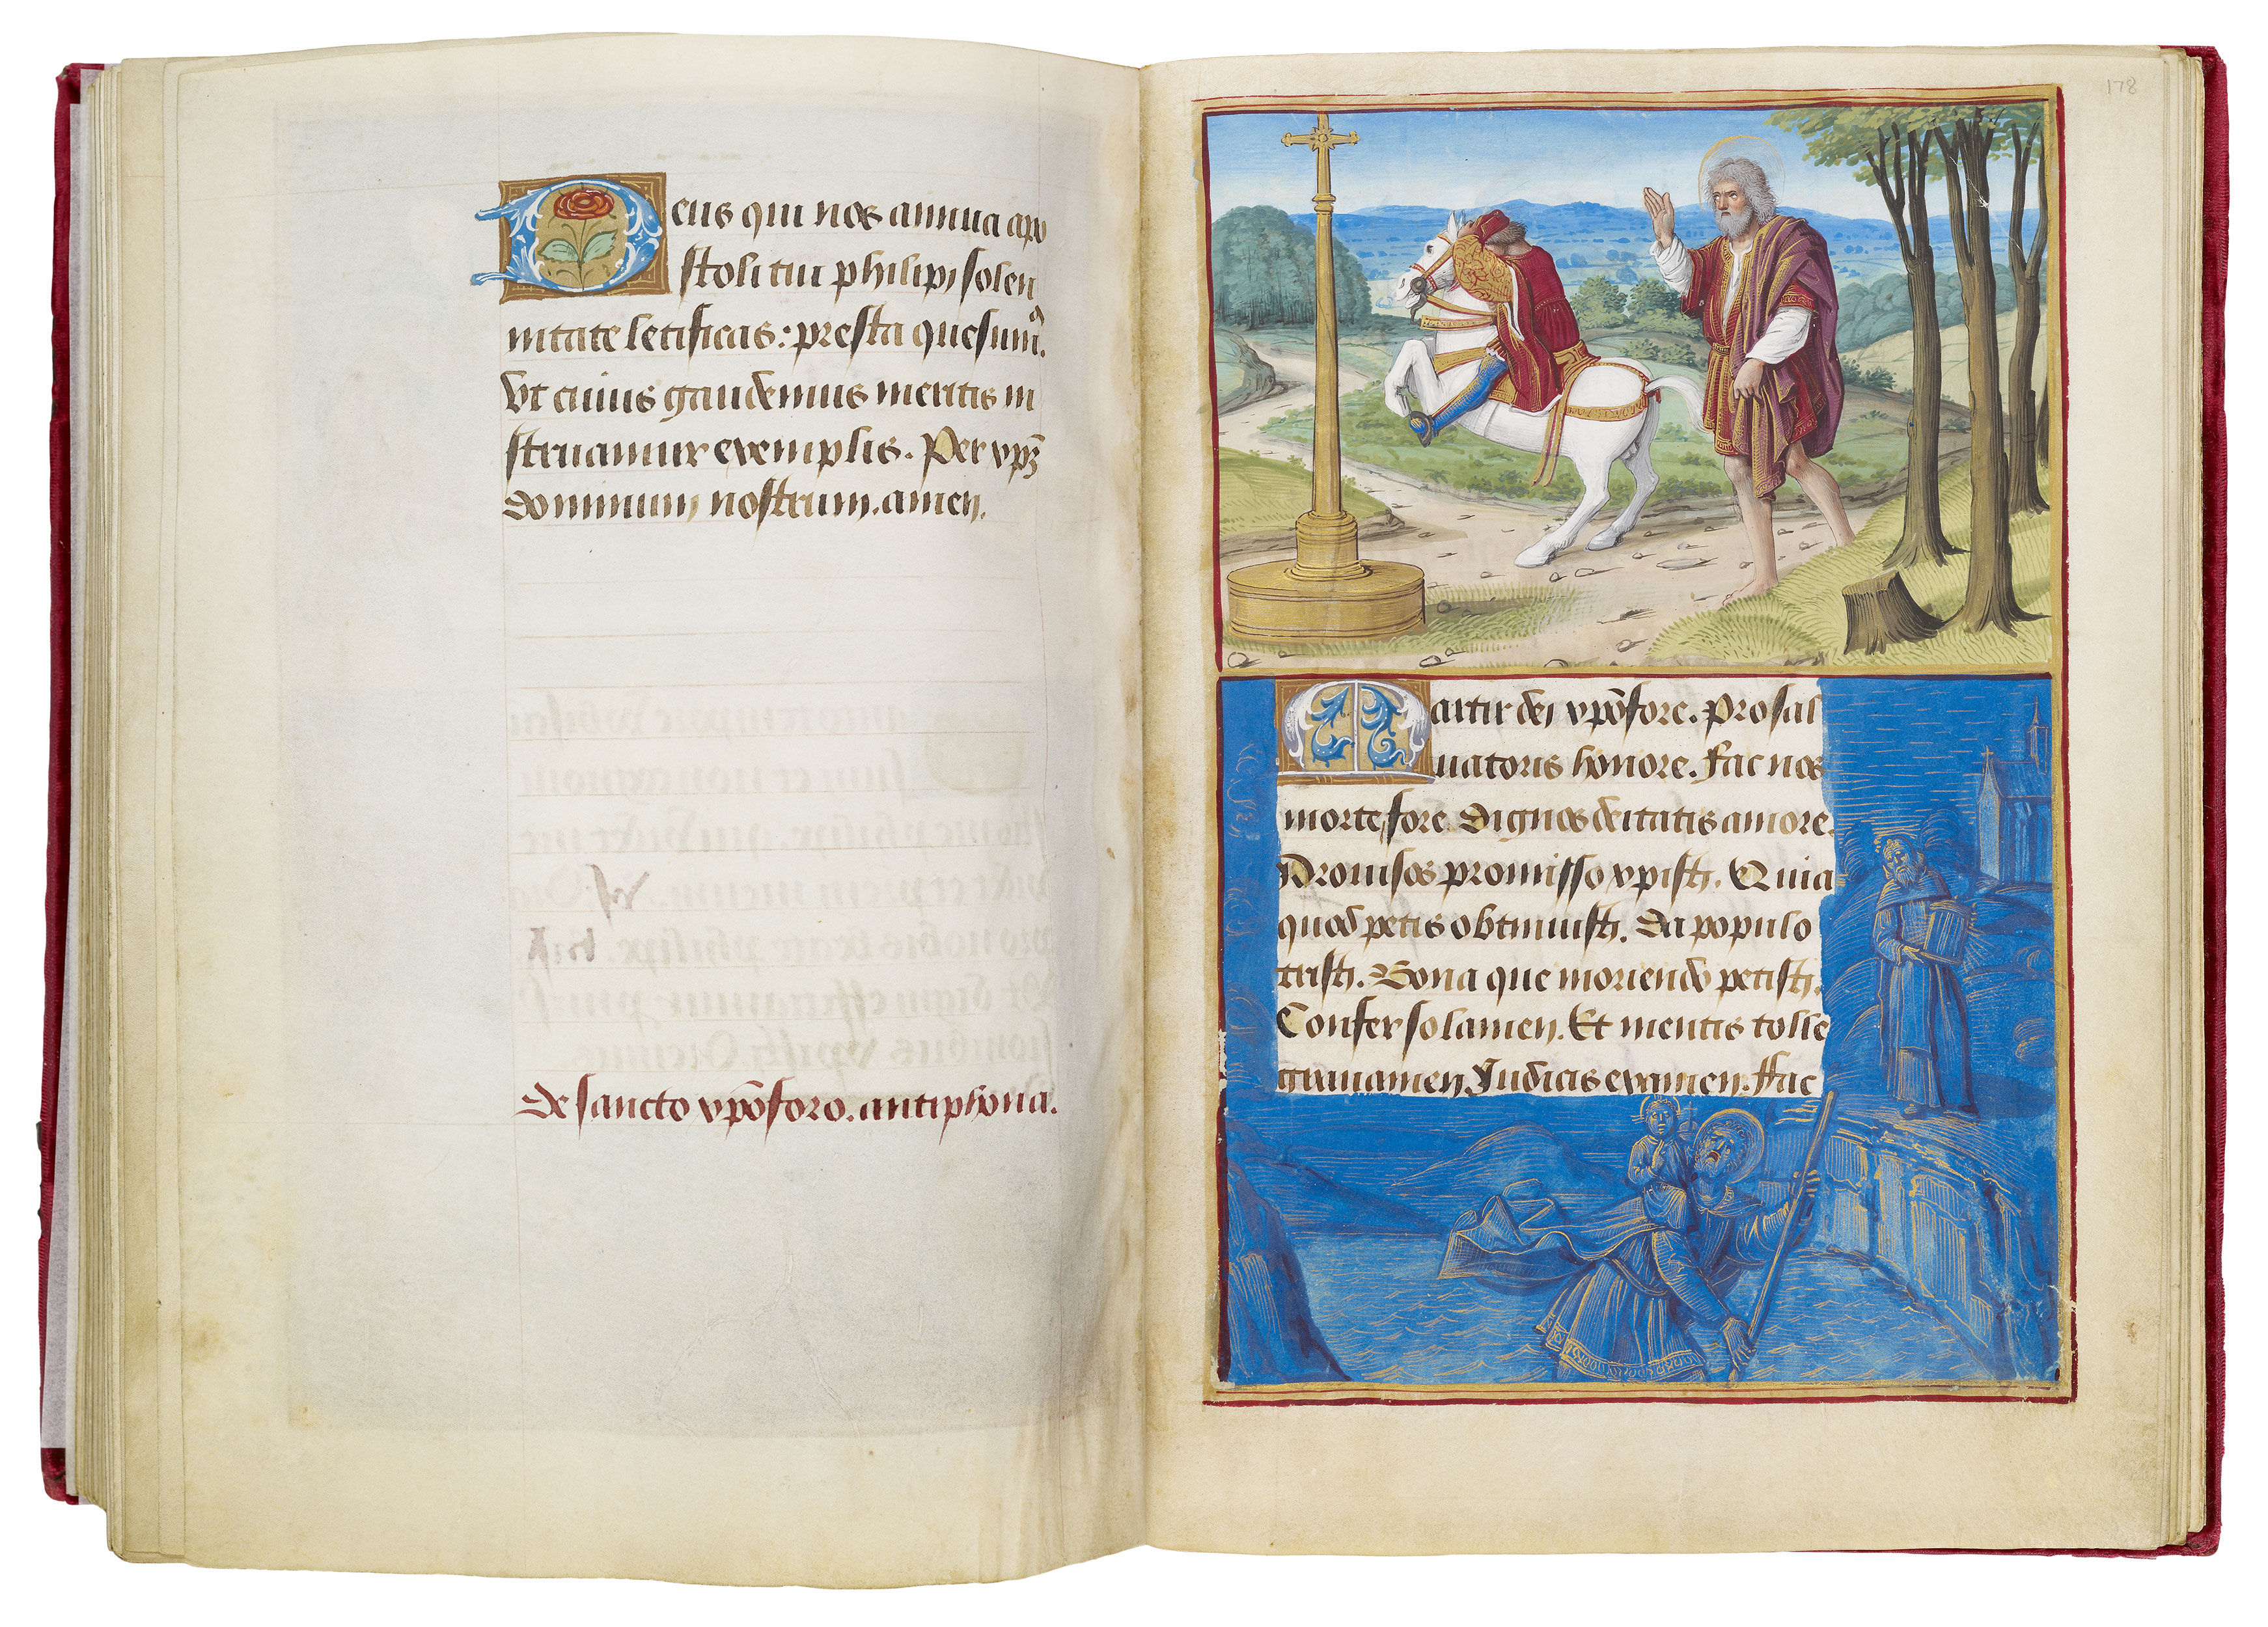 Deus qui nos annua apo
stoli tui philipi solen
nitate letificas: presta quesumꝰ.
vt cuius gaudemus meritis in
struamur exemplis. Per xpꝫ
dominum nostrum. amen.
De sancto xpoforo. antiphona.
178
Martir dei xpofore. Pro sal
uatoris honore. Fac nos
morte fore dignos deitatis amore.
Promisos promisso xpisti. Quia
quod petis obtinuisti. Da populo
tristi. Bona que moriendo petisti.
Confer solamen. Et mentis tolle
grauamen. Iudicis examen. Fac